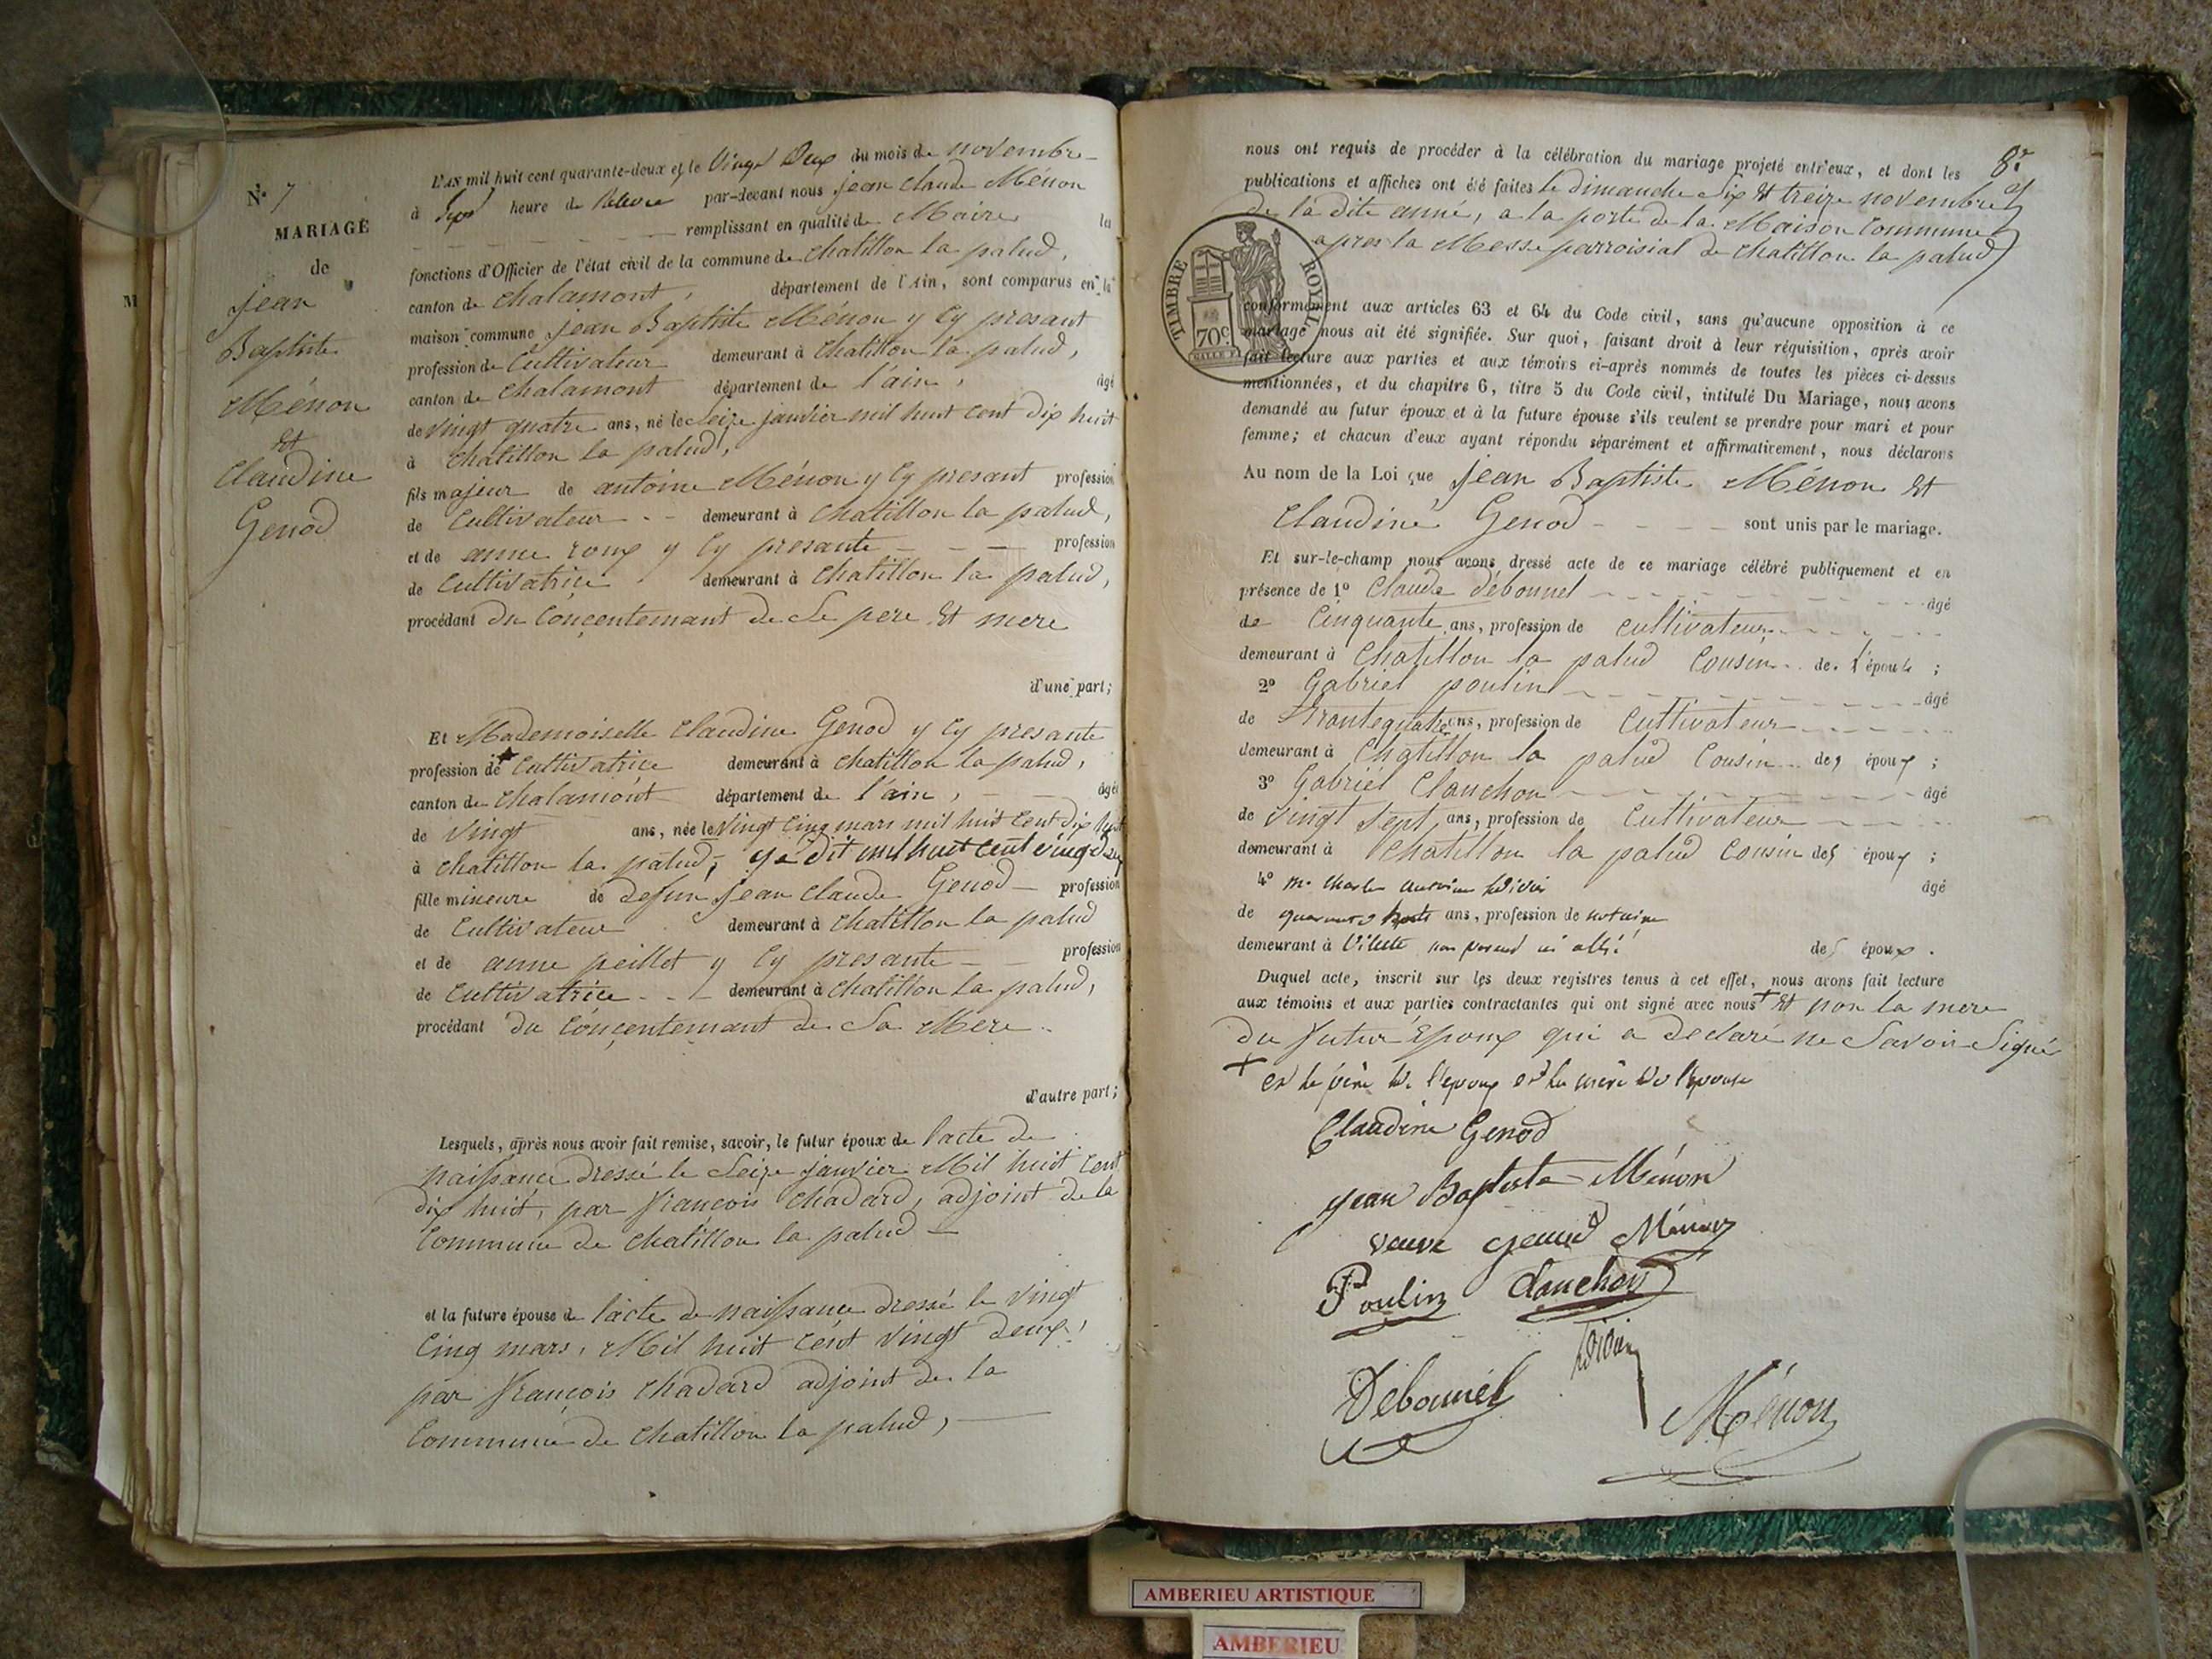 N° 7
MARIAGE
de
jean
Baptiste
Ménon
et
Claudine
Genod
M
L'AN mil huit cent quarante-deux et le Vingt Deux du mois de novembre
à heure de par-devant nous jean Claude Ménon
remplissant en qualité de Maire la
fonctions d'Officier de l'état civil de la commune de chatillon la palud,
canton de chalamont, département de l'Ain, sont comparus en la
maison commune jean Baptiste Ménon y Cy presant
profession de Cultivateur demeurant à chatillon la palud,
canton de chalamont département de l'ain, âgé
de vingt quatre ans, né le Seize janvier mil huit cent dix huit
à chatillon la palud,
fils majeur de antoine Ménon y Cy presant profession
de Cultivateur demeurant à chatillon la palud,
et de anne roux y Cy presante profession
de Cultivatrice demeurant à chatillon la palud,
procédant du Conçentemant de Se pere et mere
d'une part;
Et Mademoiselle Claudine Genod y Cy presante
profession de Cultivatrice demeurant à chatillon la palud,
canton de chalamont département de l'ain, âgée
de vingt ans, née le Vingt Cinq mars mil huit Cent dix huit
à chatillon la palud, je dit mil huit cent vingt deux
fille mineure de defun jean Claude Genod profession
de Cultivateur demeurant à chatillon la palud
et de anne peillet y Cy presante profession
de Cultivatrice demeurant à chatillon la palud,
procédant du Conçentemant de Sa Mere
d'autre part;
Lesquels, après nous avoir fait remise, savoir, le futur époux de l'acte de
naissance dressé le Seize janvier Mil huit Cent
dix huit, par françois Chadard, adjoint de la
Commune de chatillon la palud
et la future épouse de l'acte de naissance dressé le Vingt
Cinq mars, Mil huit Cent Vingt deux,
par françois Chadard adjoint de la
Commune de chatillon la palud,
8e
nous ont requis de procéder à la célébration du mariage projeté entr'eux, et dont les
publications et affiches ont été faites le dimanche Six et treize novembre
de la dite anné, a la porte de la Maison Commune
apres la Messe parroisial de chatillon la palud
TIMBRE ROYAL
70c.
conformément aux articles 63 et 64 du Code civil, sans qu'aucune opposition à ce
mariage nous ait été signifiée. Sur quoi, faisant droit à leur réquisition, après avoir
fait lecture aux parties et aux témoins ci-après nommés de toutes les pièces ci-dessus
mentionnées, et du chapitre 6, titre 5 du Code civil, intitulé Du Mariage, nous avons
demandé au futur époux et à la future épouse s'ils veulent se prendre pour mari et pour
femme; et chacun d'eux ayant répondu séparément et affirmativement, nous déclarons
Au nom de la Loi que jean Baptiste Ménon et
Claudine Genod sont unis par le mariage.
Et sur-le-champ nous avons dressé acte de ce mariage célébré publiquement et en
présence de 1° Claude Debounel âgé
de Cinquante ans, profession de Cultivateur
demeurant à Chatillon la palud Cousin de l'épouse ;
2° Gabriel poulin âgé
de trantequatre ans, profession de Cultivateur
demeurant à Chatillon la palud Cousin des époux ;
3° Gabriel Clanchon âgé
de Vingt Sept ans, profession de Cultivateur
demeurant à chatillon la palud Cousin des époux ;
4° M. Charles âgé
de quarante ans, profession de notaire
demeurant à non parent ni allié des époux.
Duquel acte, inscrit sur les deux registres tenus à cet effet, nous avons fait lecture
aux témoins et aux parties contractantes qui ont signé avec nous + et non la mere
du futur Époux qui a declaré ne Savoir Signé
+ et le père de l'époux et la mère de l'épouse
Claudine Genod
jean Baptiste Ménon
veuve genod Ménon
Poulin Clanchon
Debounel
Ménon
AMBERIEU ARTISTIQUE
AMBERIEU